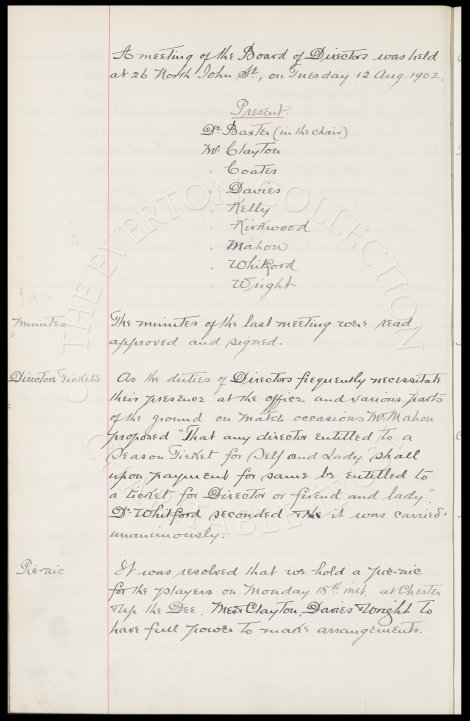 A meeting of the Board of Directors was held
at 26 North John St, on Tuesday 12 Aug. 1902.
Present.
Dr. Baxter (in the chair)
Mr. Clayton
" Coates
" Davies
" Kelly
" Kirkwood
" Mahon
" Whitford
" Wright
Minutes
The minutes of the last meeting were read
approved and signed.
Directors Tickets
As the duties of Directors frequently necessitate
their presence at the office and various parts
of the ground on match occasions Mr. Mahon
proposed "That any director entitled to a
Season Ticket for Self and Lady, shall
upon payment for same be entitled to
a ticket for Director or friend and lady".
Dr. Whitford seconded it was carried
unanimously.
Pic-nic
It was resolved that we hold a pic-nic
for the players on Monday 18th inst. at Chester
& up the Dee. Messrs Clayton, Davies & Wright to
have full power to make arrangements.
THE EVERTON COLLECTION